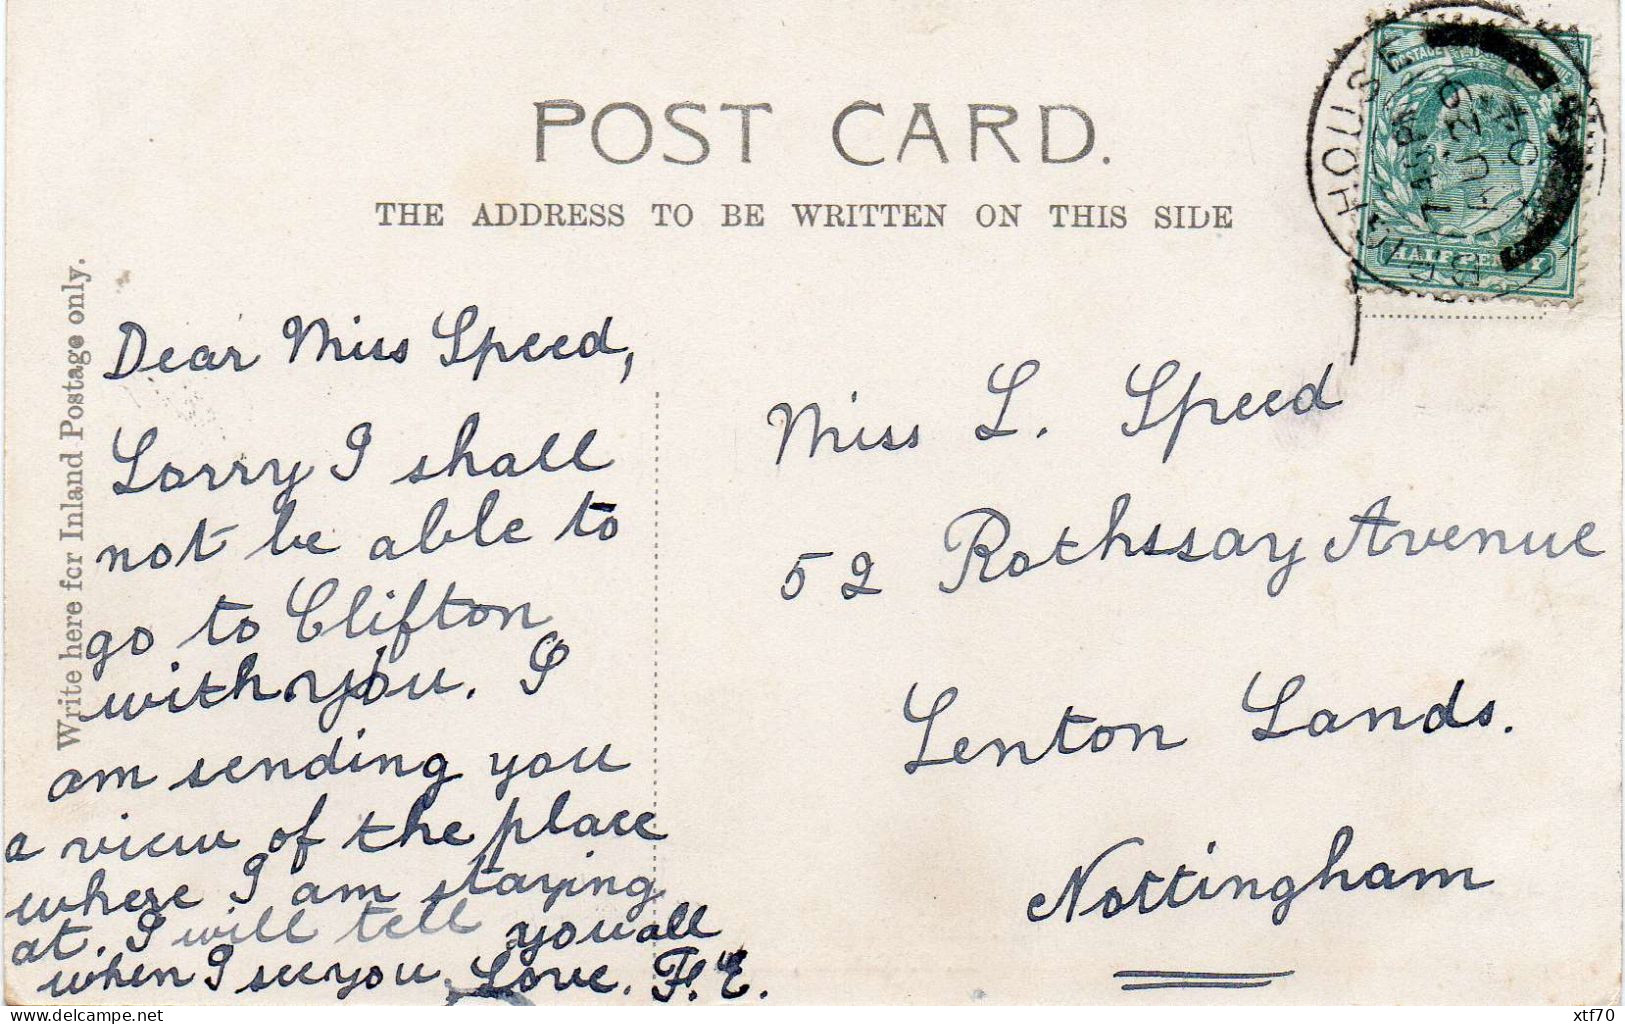 POST CARD.
THE ADDRESS TO BE WRITTEN ON THIS SIDE
Write here for Inland Postage only.
BRIGHOUSE
7 45 PM
AU 26
04
HALFPENNY
Dear Miss Speed,
Sorry I shall
not be able to
go to Clifton
with you. I
am sending you
a view of the place
where I am staying
at. I will tell you all
when I see you. Love. F. E.
Miss L. Speed
52 Rothssay Avenue
Lenton Sands.
Nottingham
delcampe.net
xtf70